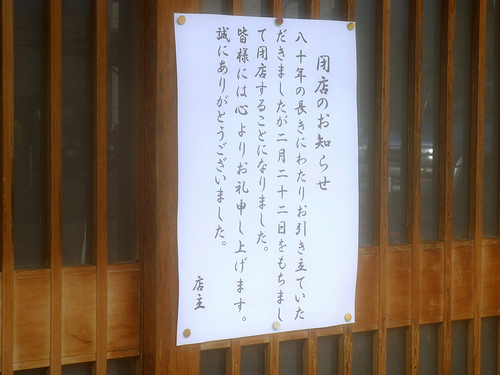 閉店のお知らせ
八十年の長きにわたりお引き立ていた
だきましたが二月二十二日をもちまし
て閉店することになりました。
皆様には心よりお礼申し上げます。
誠にありがとうございました。
店主